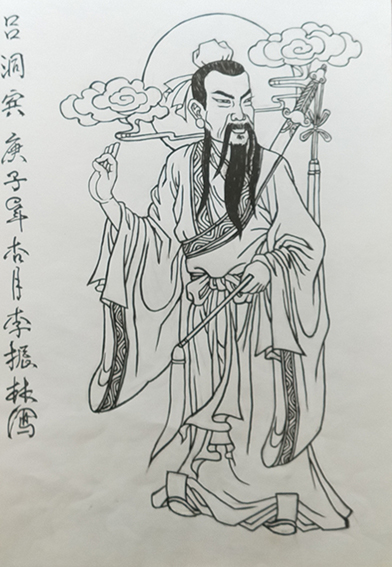 吕洞宾庚子年杏月李振林写